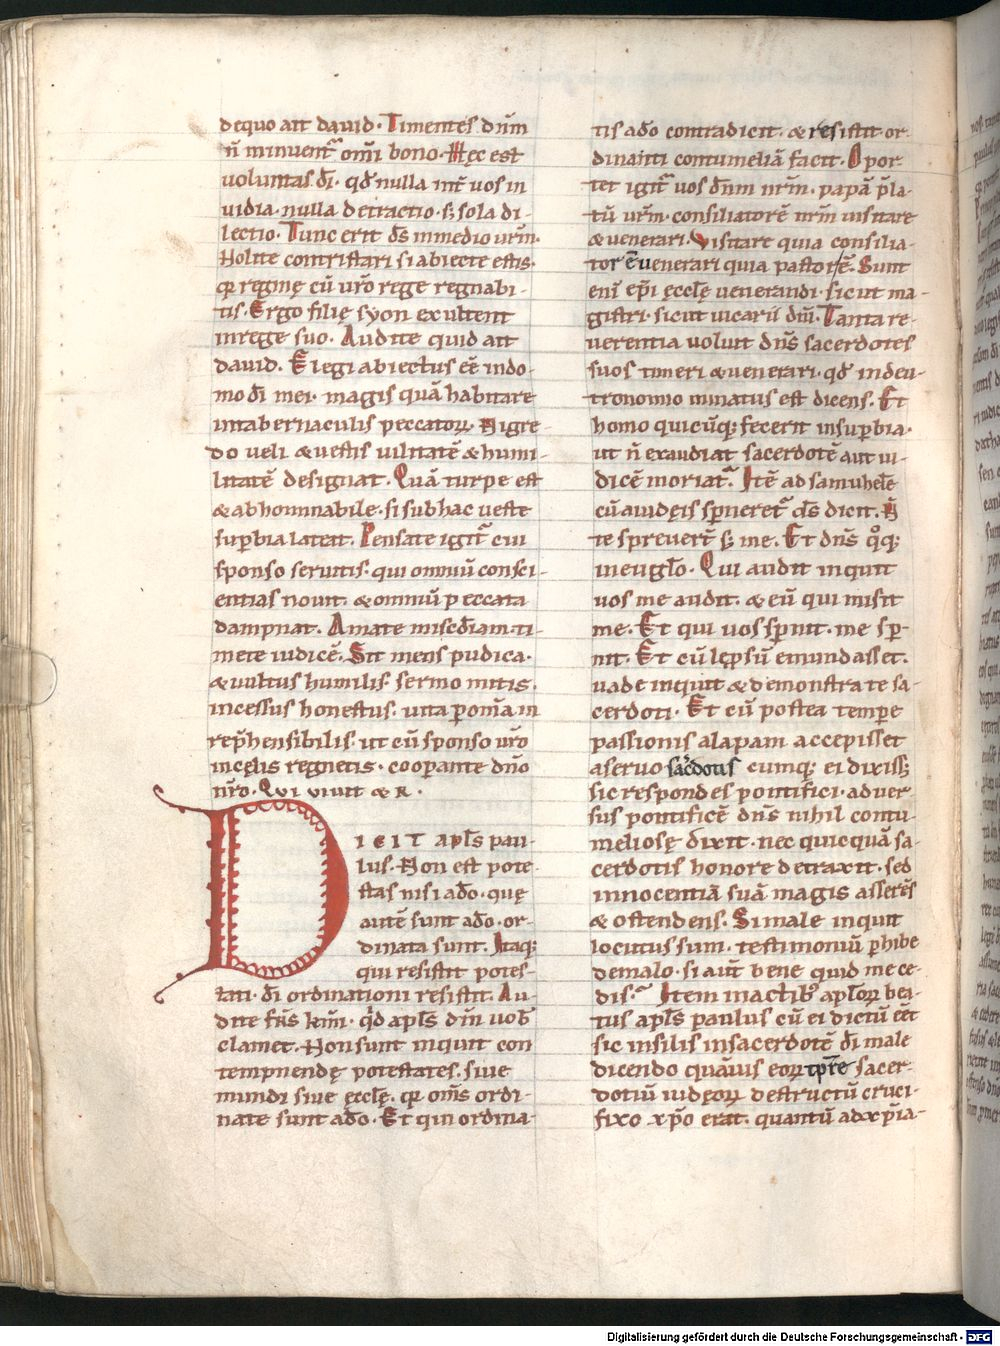 dequo ait dauid · Timentes dñm
ñ minuentᷓ omĩ bono · Hęc est
uoluntas dī · qđ nulla int̄ uos in
uidia · nulla detractio · s; sola di-
lectio · Tunc erit ds̄ inmedio ur̄m ·
Nolite contristari si abiecte estis ·
qr̄ reginę cū ur̄o rege regnabi-
tis · Ergo filię syon exultent
inrege suo · Audite quid ait
dauid · Elegi abiectus eē indo-
mo dī mei · magis quā habitare
intabernaculis peccatoꝝ · Nigre-
do ueli & uestis uilitatē & humi-
litatē designat · Quā turpe est
& abhominabile · si sub hac ueste
supbia lateat · Pensate igitᷓ cui
sponso seruitis · qui omniū consci-
entias nouit · & omniū peccata
dampnat · Amate misc̄diam · ti-
mete iudicē · Sit mens pudica ·
& uultus humilis · sermo mitis ·
incessus honestus · uita p omīa in
rep̄hensibilis · ut cū sponso ur̄o
incęlis regnetis · coop̄ante dño
nr̄o · Qui uiuit & R ·
DICIT apłs pau-
lus · Non est pote-
stas nisi ado · quę
autē sunt ado · or-
dinata sunt · Itaq;
qui resistit potes-
tati · dī ordinationi resistit · Au-
dite fr̄s km̄i · qđ apłs dīn uob̄
clamet · Non sunt inquit con
tempnendę potestates · siue
mundi siue ęccłę · qr̄ om̄s ordi-
nate sunt ado · Et qin ordina-
tis ado contradicit · & resistit or-
dinaīti contumeliā facit · Opor-
tet igitᷓ uos dñm nr̄m · papā p̄la-
tū ur̄m · consiliatorē nr̄m uisitare
& uenerari · Visitare quia consilia-
torē uenerari quia pastorē · Sunt
enī ep̄i ęccłę uenerandi · sicut ma-
gistri · sicut uicarii dīm · Tanta re-
uerentia uoluit dñs sacerdotes
suos timeri & uenerari · qđ indeu-
tronomio minatus est dicens · Et
homo quicūq; fecerit insup̄bia ·
ut ñ exaudiat sacerdotē aut iu-
dicē moriatᷓ · Itē ad samuhelē
cū auidęis sp̄neretᷓ ds̄ dicit · Ñ
te spreuer̄t s; me · Et dñs qͦq;
ineuglō · Qui audit inquit
uos me audit · & eū qui misit
me · Et qui uos sp̄nit · me sp̄-
nit · Et cū lęp̄sū emundasset ·
uade inquit & demonstra te sa-
cerdoti · Et cū postea tempe
passionis alapam accepisset
aseruo sac̄dotis cumq; ei dixiss;
sic respondes pontifici · aduer
sus pontificē dñs nihil contu-
meliosę dixit · nec quicquā sa-
cerdotis honore detraxit · sed
innocentiā suā magis asserēs
& ostendens · Si male inquit
locutus sum · testimoniū p̄hibe
demalo · si aut̄ bene quid me ce-
dis · Item inactib; apłoꝝ bea-
tus apłs paulus cū ei dictū eēt
sic insilis insacerdotē dī male
dicendo quāuius eoꝝ tp̄re sacer-
dotiū iudęoꝝ destructū cruci-
fixo xp̄o erat · quantū ad xp̄ia-
Digitalisierung gefördert durch die Deutsche Forschungsgemeinschaft - DFG